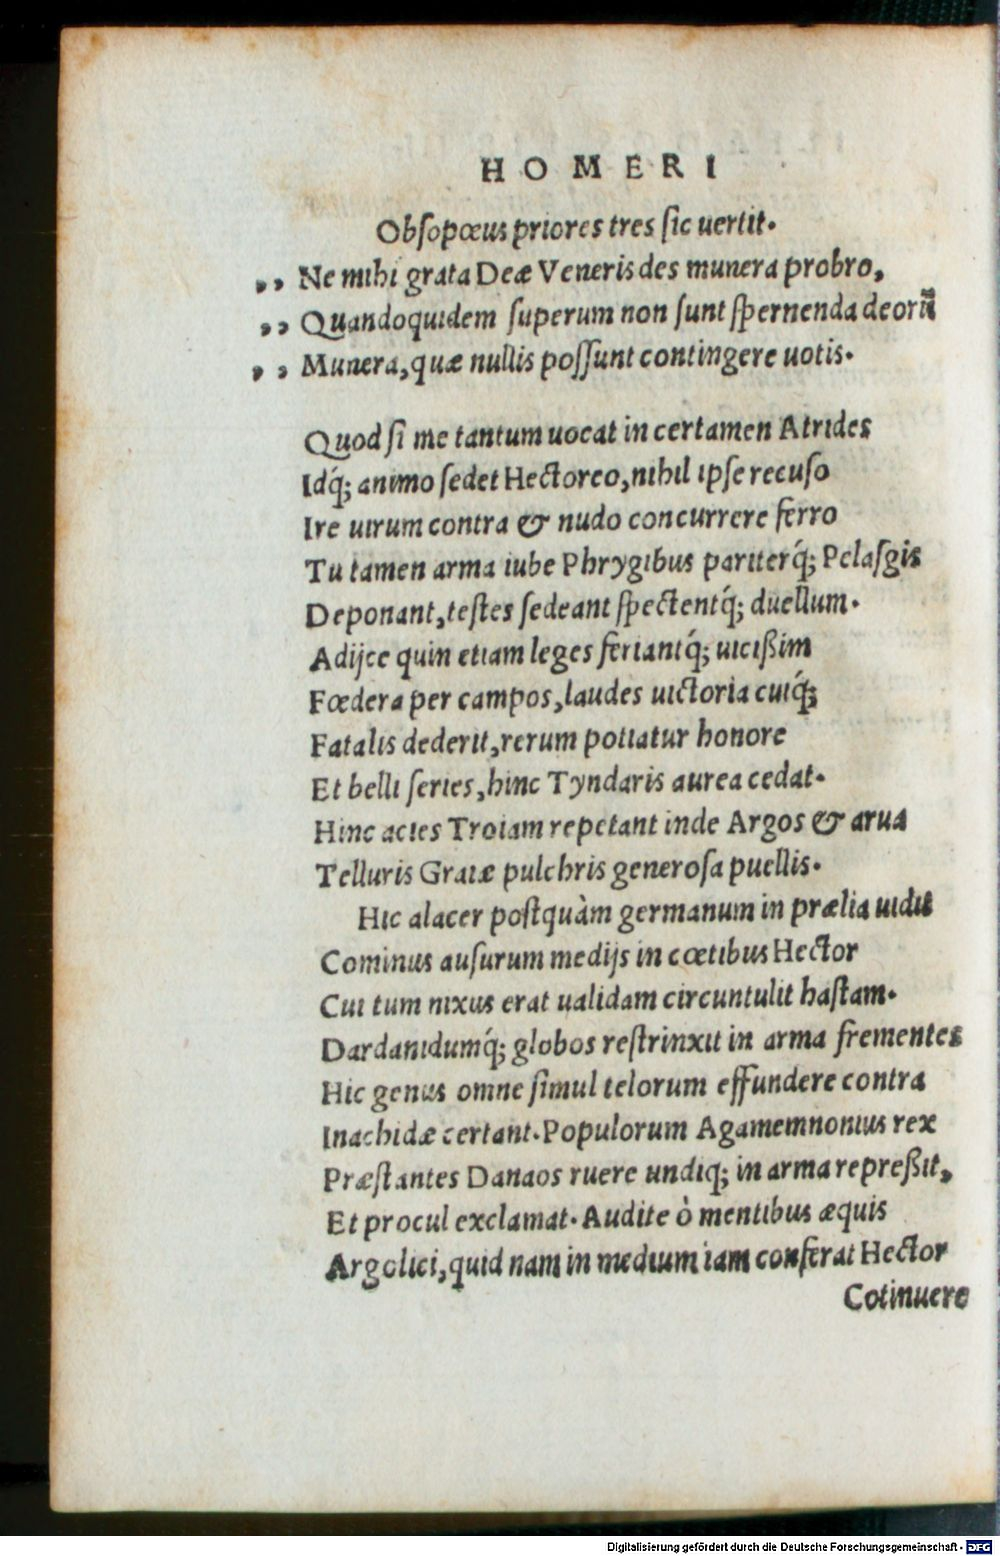 HOMERI
Obsopœus priores tres sic uertit.
,, Ne mihi grata Deæ Veneris des munera probro,
,, Quandoquidem superum non sunt spernenda deorũ
,, Munera, quæ nullis possunt contingere uotis.
Quod si me tantum uocat in certamen Atrides
Idq́; animo sedet Hectoreo, nihil ipse recuso
Ire uirum contra & nudo concurrere ferro
Tu tamen arma iube Phrygibus pariterq́; Pelasgis
Deponant, testes sedeant spectentq́; duellum.
Adijce quin etiam leges feriantq́; uicißim
Fœdera per campos, laudes uictoria cuiq́;
Fatalis dederit, rerum potiatur honore
Et belli series, hinc Tyndaris aurea cedat.
Hinc acies Troiam repetant inde Argos & arua
Telluris Graiæ pulchris generosa puellis.
Hic alacer postquàm germanum in prælia uidit
Cominus ausurum medijs in cœtibus Hector
Cui tum nixus erat ualidam circuntulit hastam.
Dardanidumq́; globos restrinxit in arma frementes
Hic genus omne simul telorum effundere contra
Inachidæ certant. Populorum Agamemnonius rex
Præstantes Danaos ruere undiq; in arma repreßit,
Et procul exclamat. Audite ò mentibus æquis
Argolici, quid nam in medium iam conferat Hector
Cotinuere
Digitalisierung gefördert durch die Deutsche Forschungsgemeinschaft - DFG